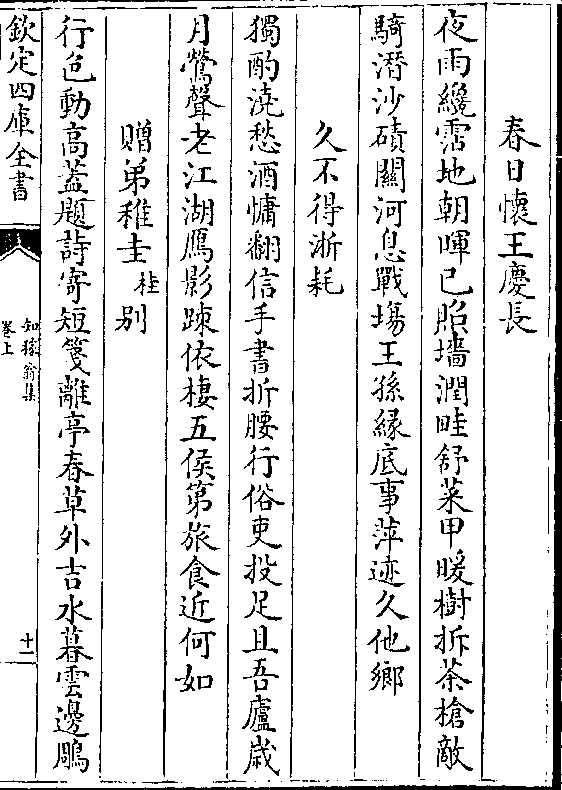 春日懷王慶長
夜雨纔霑地朝暉已照墻潤畦舒菜甲暖樹拆茶槍敵
騎潛沙磧關河息戰塲王孫緣底事萍迹久他鄉
久不得淅耗
獨酌澆愁酒慵翻信手書折腰行俗吏投足且吾廬歲
月鶯聲老江湖鴈影踈依棲五侯第旅食近何如
贈弟稚圭桂别
行色動高蓋題詩寄短箋離亭春草外吉水暮雲邊鵰
欽定四庫全書
知稼翁集
卷上
十二